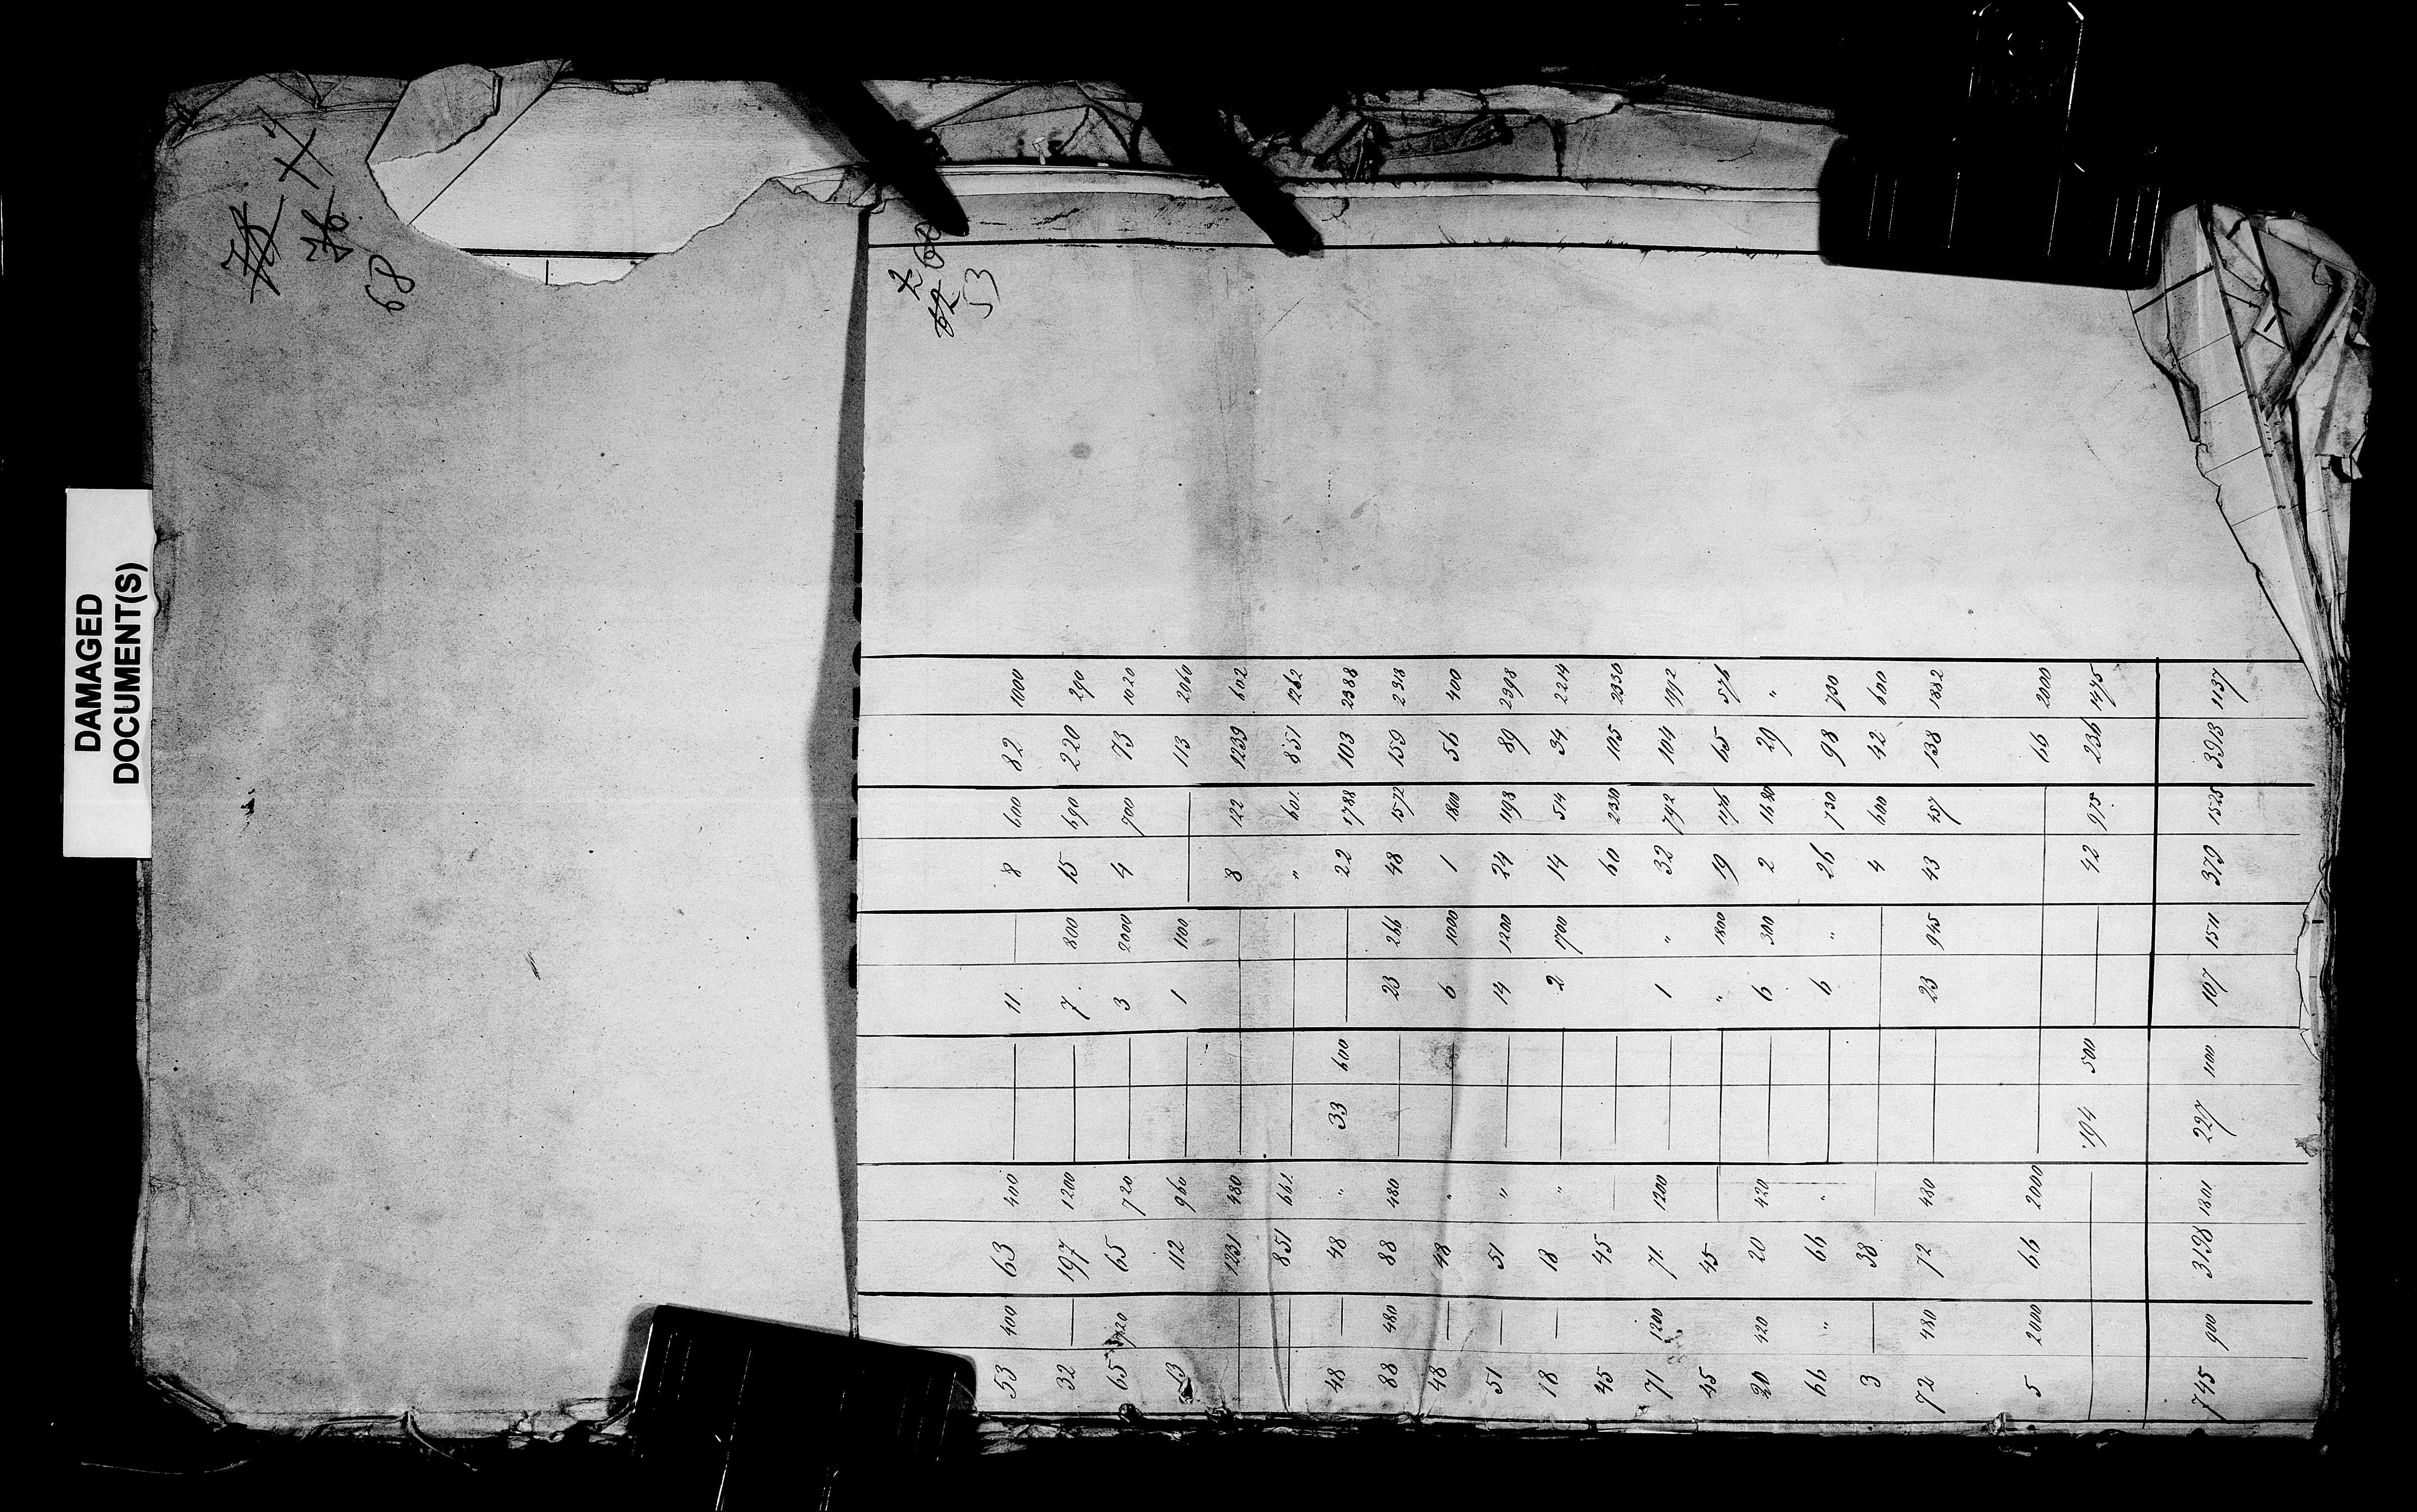 DAMAGED
DOCUMENT(S)
69
53
53 400 63 400 — — 11 — 8 600 82 1000
32 — 197 1200 — — 7 800 15 690 220 290
65 720 65 720 — — 3 2000 4 700 73 1020
13 112 960 — — 1 1100 — 113 2060
— 1231 480 — — 8 122 1239 602
— 851 661. — — " 601. 851 1262
48 — 48 " 33 600 — 22 1788 103 2388
88 480 88 480 — — 23 266 48 1572 159 2318
48 — 48 " — — 6 1000 1 1800 56 400
51 — 51 " — — 14 1200 24 1198 89 2398
18 — 18 " — — 2 1700 14 514 34 2214
45 45 — — 60 2330 105 2330
71 1200 71. 1200 — — 1 " 32 792 104 1992
45 45 — " 1800 19 1176 65 576
20 420 20 420 — — 6 300 2 1680 29 "
66 " 66 " — — 6 " 26 730 98 730
3 — 38 — — 4 600 42 600
72 480 72 480 — — 23 945 43 457 138 1882
5 2000 66 2000 — 66 2000
— 194 500 — — 42 975 236 1475
745 900 3198 1801 227 1100 107 1511 379 1525 3913 1137